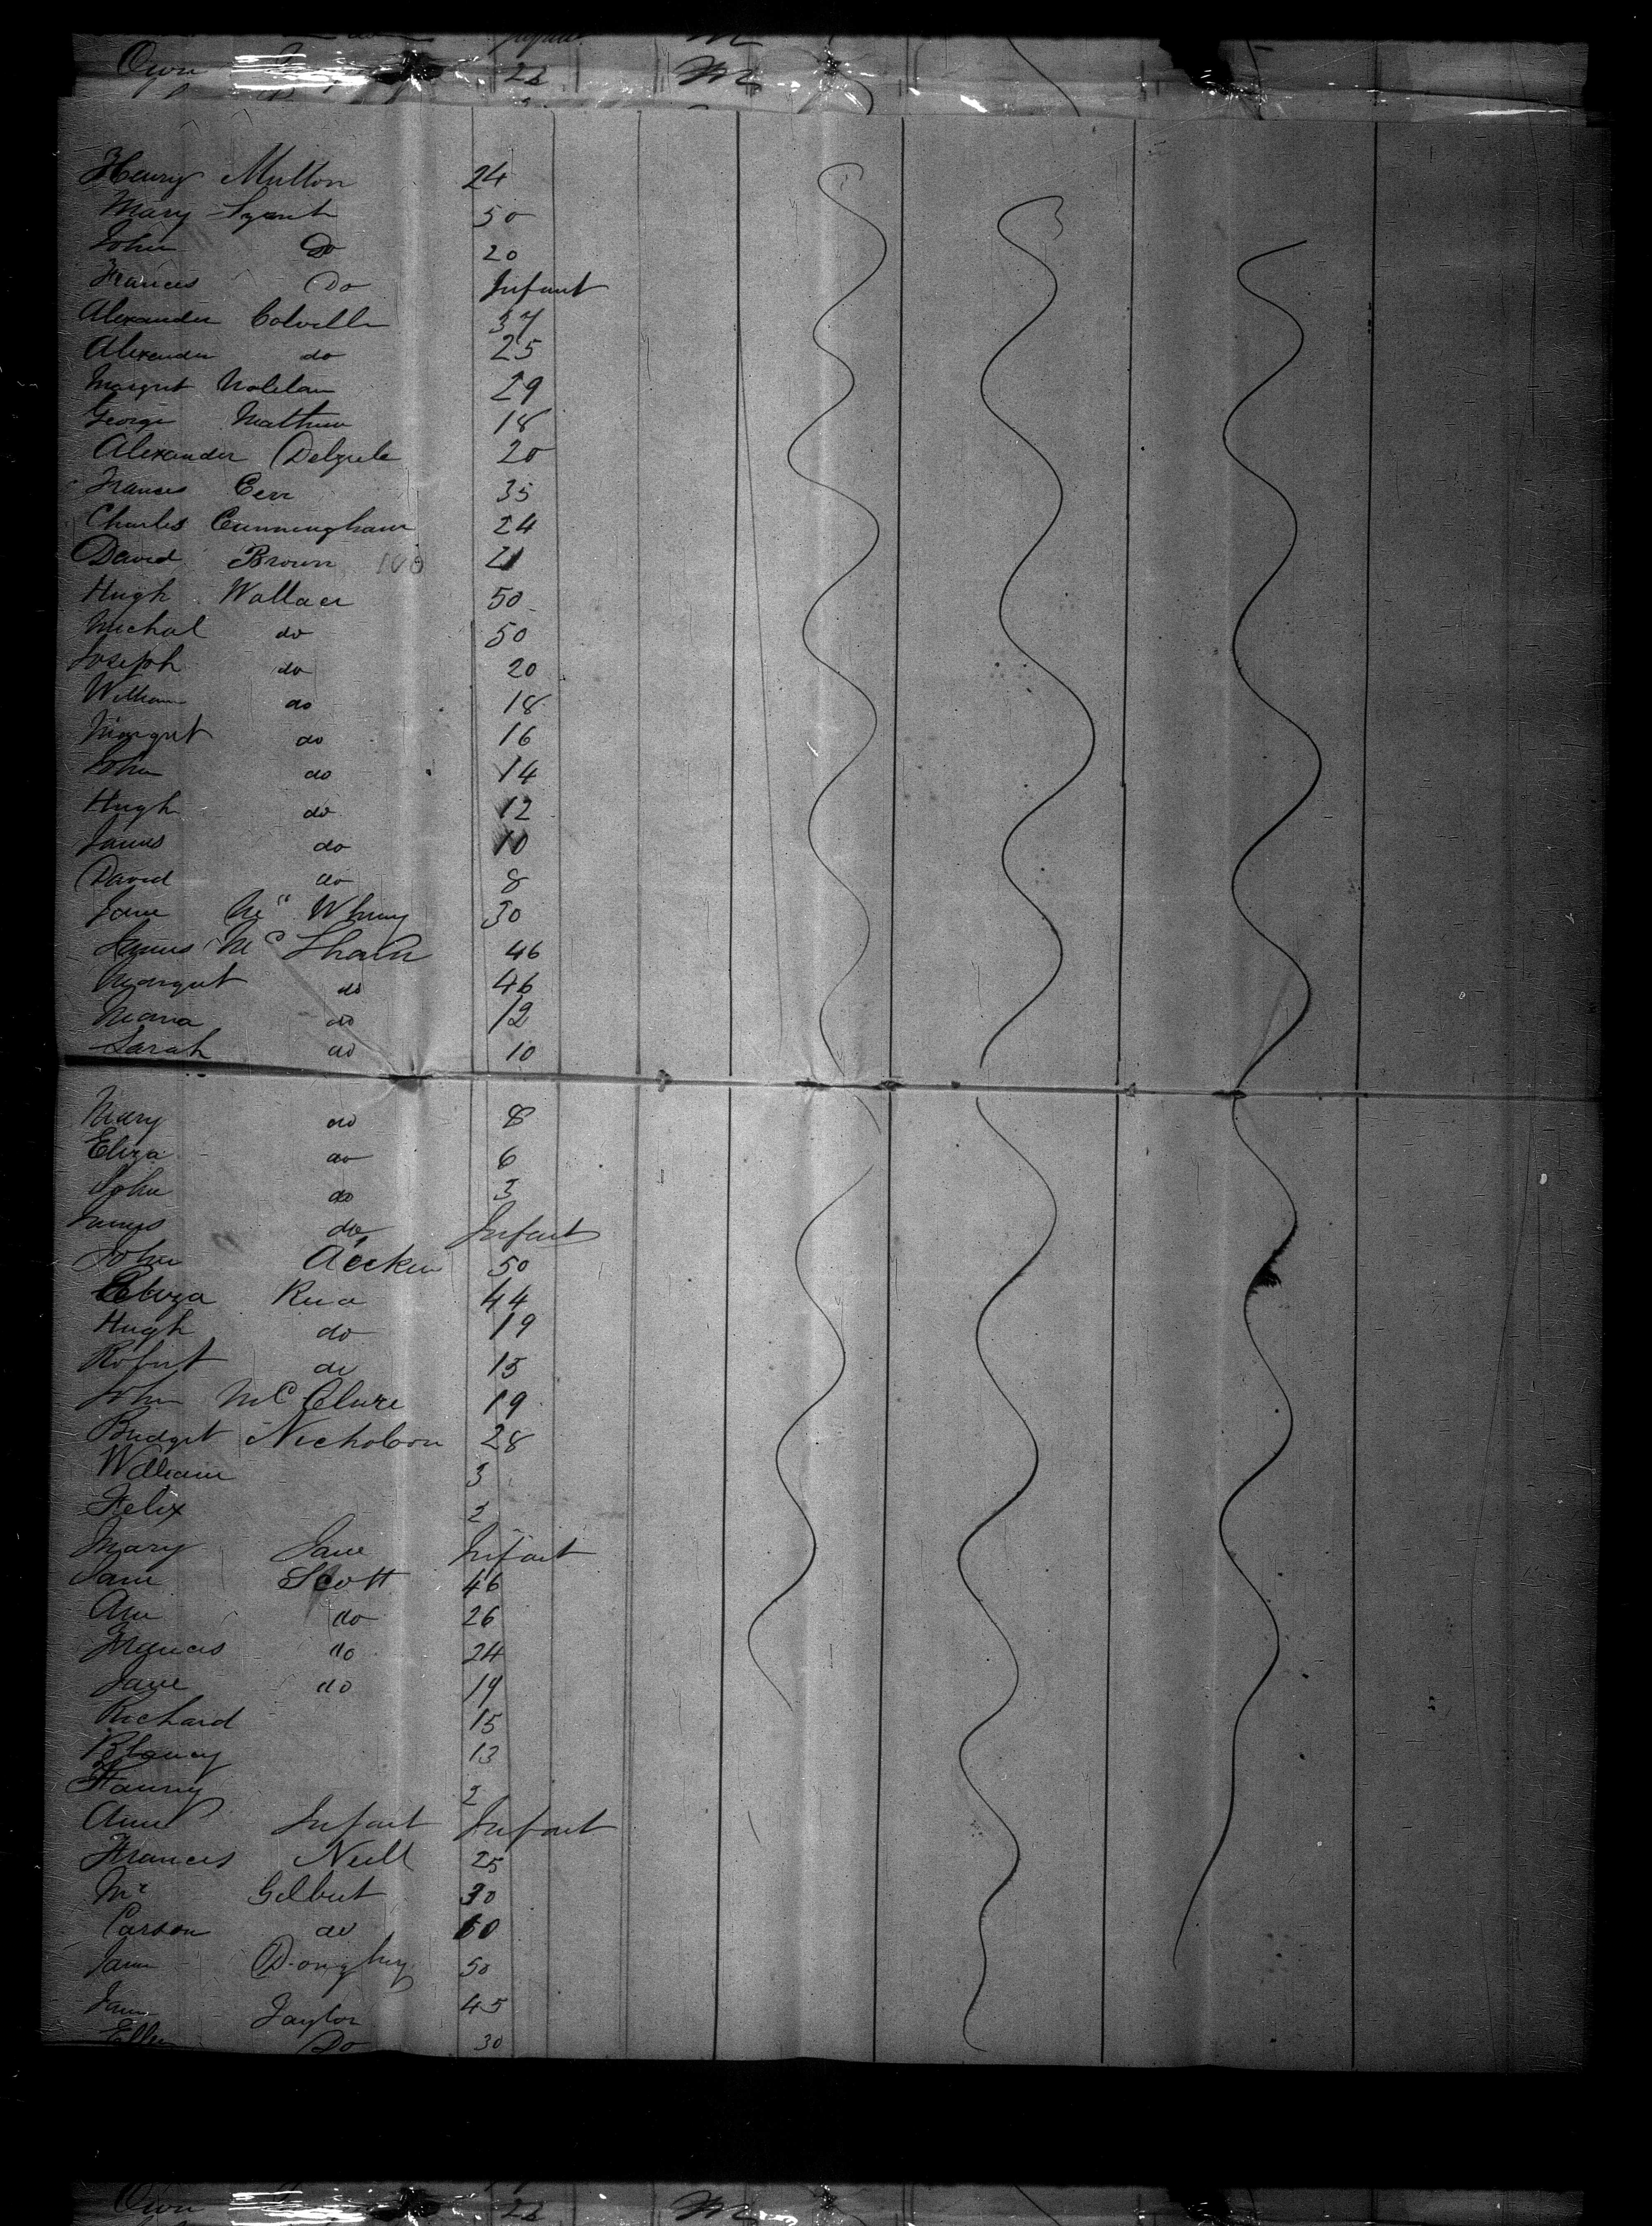 Owen 22 M
Henry Mutton 24
Mary 50
John Do 20
Frances Do Infant
Alexander Colville 37
Alexander do 25
Margret 29
George Mathew 18
Alexander 20
Frances Cerr 35
Charles Cunningham 24
David Brown 100 21
Hugh Wallace 50
Michal do 50
Joseph do 20
William do 18
Margret do 16
John do 14
Hugh do 12
James do 10
David do 8
Jane Mc Whiny 30
James Mc 46
Margret do 46
Maria do 12
Sarah do 10
Mary do 8
Eliza do 6
John do 3
James do Infant
John Aecken 50
Eliza Rea 44
Hugh do 19
Robert do 15
John McClure 19
Bridget Nicholson 28
William 3
Felix 2
Mary Jane Infant
Jane Scott 46
Ann do 26
Frances do 24
Jane do 19
Richard 15
Blaney 13
Fanny 2
Anne Infant Infant
Frances Neill 25
Mr Gilbert 30
Carson do 60
Jane Donghey 50
Jane Taylor 45
Ellen Do 30
Owen 22 M